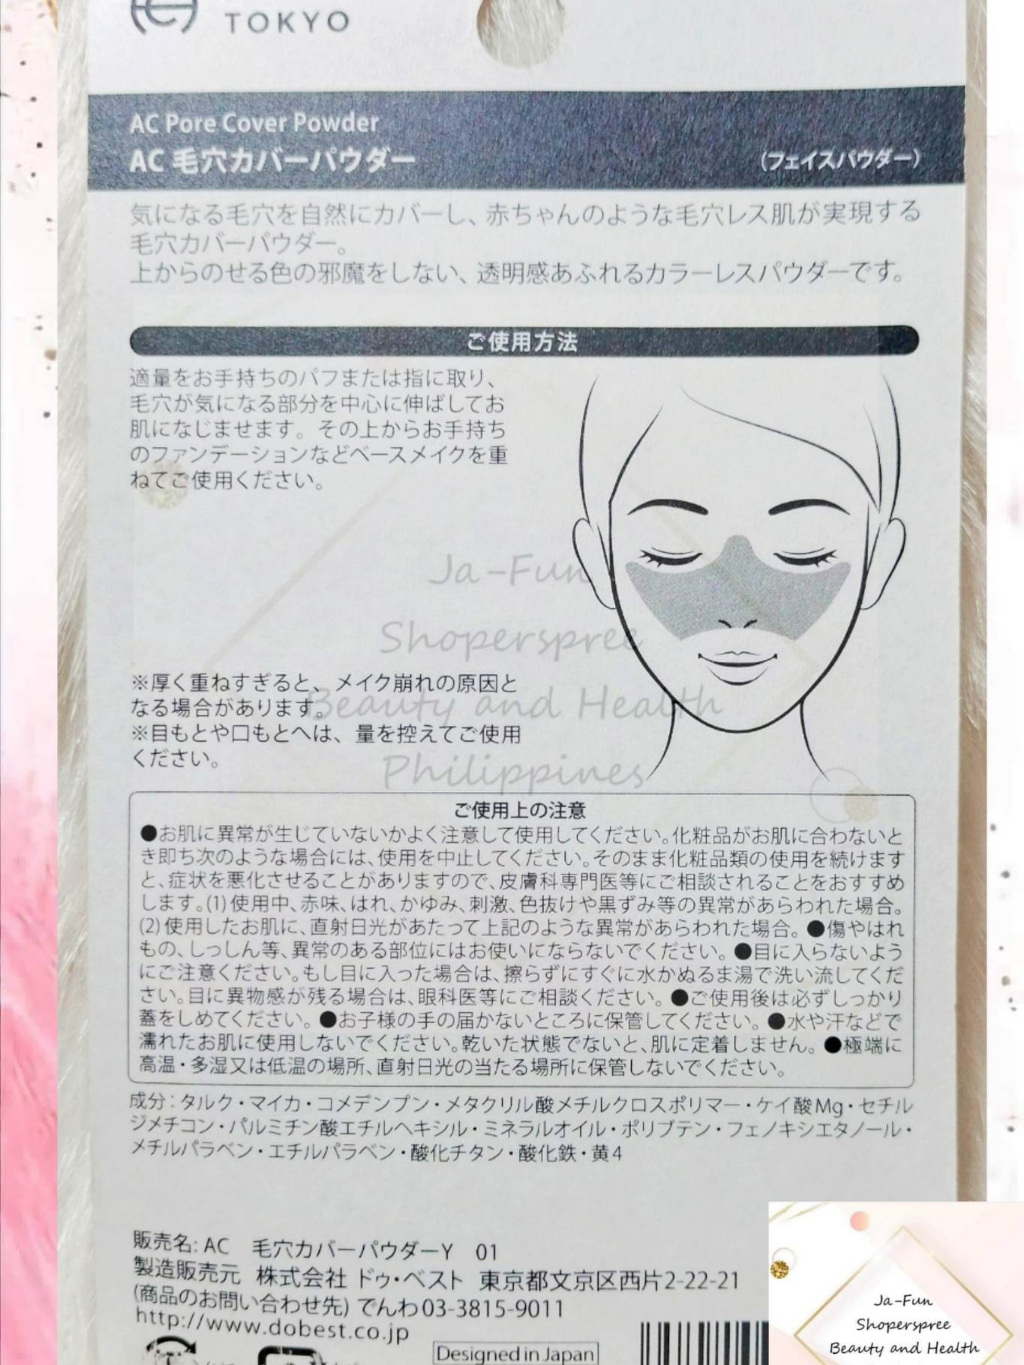 TOKYO
AC Pore Cover Powder
AC 毛穴カバーパウダー
（フェイスパウダー）
気になる毛穴を自然にカバーし、赤ちゃんのような毛穴レス肌が実現する
毛穴カバーパウダー。
上からのせる色の邪魔をしない、透明感あふれるカラーレスパウダーです。
ご使用方法
適量をお手持ちのパフまたは指に取り、
毛穴が気になる部分を中心に伸ばしてお
肌になじませます。その上からお手持ち
のファンデーションなどベースメイクを重
ねてご使用ください。
Ja-Fun
Shoperspree
Beauty and Health
Philippines
※厚く重ねすぎると、メイク崩れの原因と
なる場合があります。
※目もとや口もとへは、量を控えてご使用
ください。
ご使用上の注意
●お肌に異常が生じていないかよく注意して使用してください。化粧品がお肌に合わないと
き即ち次のような場合には、使用を中止してください。そのまま化粧品類の使用を続けます
と、症状を悪化させることがありますので、皮膚科専門医等にご相談されることをおすすめ
します。(1)使用中、赤味、はれ、かゆみ、刺激、色抜けや黒ずみ等の異常があらわれた場合。
(2)使用したお肌に、直射日光があたって上記のような異常があらわれた場合。●傷やはれ
もの、しっしん等、異常のある部位にはお使いにならないでください。●目に入らないよう
にご注意ください。もし目に入った場合は、擦らずにすぐに水かぬるま湯で洗い流してくだ
さい。目に異物感が残る場合は、眼科医等にご相談ください。●ご使用後は必ずしっかり
蓋をしめてください。●お子様の手の届かないところに保管してください。●水や汗などで
濡れたお肌に使用しないでください。乾いた状態でないと、肌に定着しません。●極端に
高温・多湿又は低温の場所、直射日光の当たる場所に保管しないでください。
成分：タルク・マイカ・コメデンプン・メタクリル酸メチルクロスポリマー・ケイ酸Mg・セチル
ジメチコン・パルミチン酸エチルヘキシル・ミネラルオイル・ポリブテン・フェノキシエタノール・
メチルパラベン・エチルパラベン・酸化チタン・酸化鉄・黄4
販売名: AC 毛穴カバーパウダーY 01
製造販売元 株式会社 ドゥ・ベスト 東京都文京区西片2-22-21
(商品のお問い合わせ先) でんわ03-3815-9011
http://www.dobest.co.jp
Designed in Japan
Ja-Fun
Shoperspree
Beauty and Health